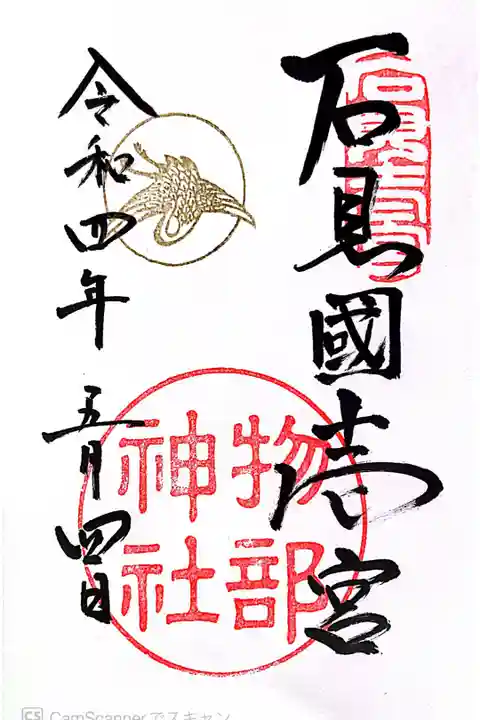 石見國壱宮
物部
神社
令和四年 五月四日
CS CamScannerでスキャン